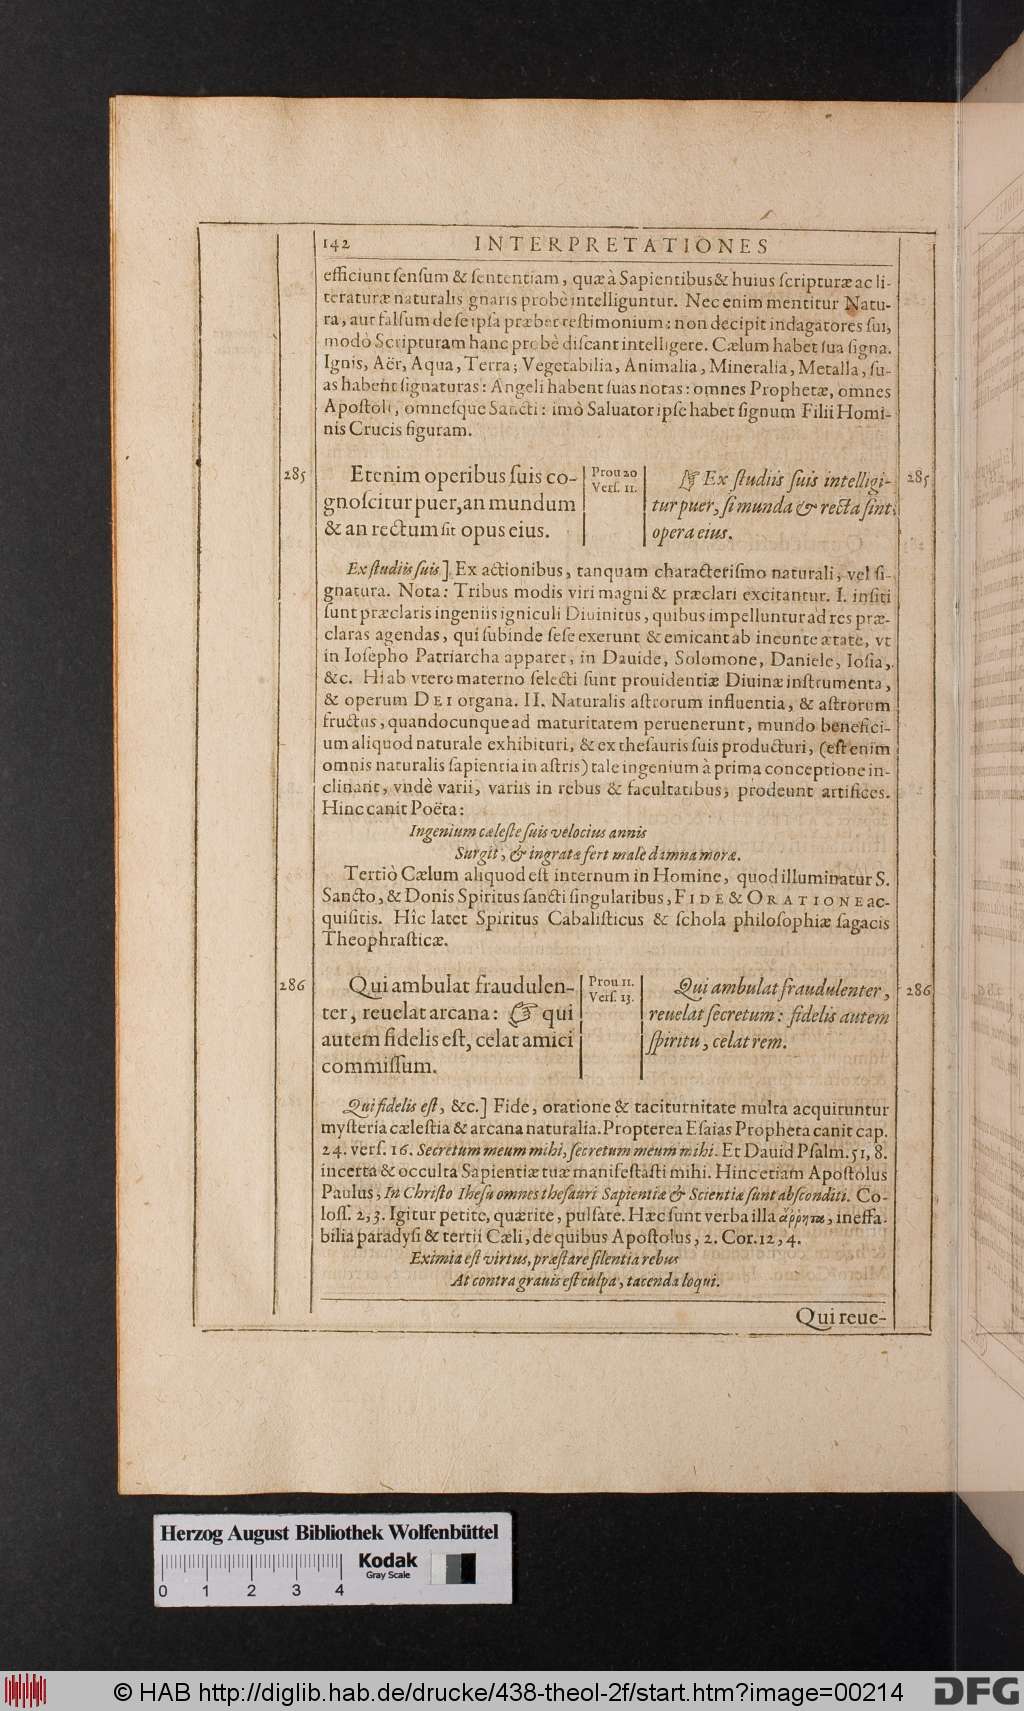 142 INTERPRETATIONES
efficiunt ſenſum & ſententiam, quæ à Sapientibus & huius ſcripturæ ac li-
teraturæ naturalis gnaris probè intelliguntur. Nec enim mentitur Natu-
ra, aut falſum de ſe ipſa præbet teſtimonium: non decipit indagatores ſui,
modò Scripturam hanc probè diſcant intelligere. Cælum habet ſua ſigna.
Ignis, Aër, Aqua, Terra; Vegetabilia, Animalia, Mineralia, Metalla, ſu-
as habent ſignaturas: Angeli habent ſuas notas: omnes Prophetæ, omnes
Apoſtoli, omneſque Sancti: imò Saluator ipſe habet ſignum Filii Homi-
nis Crucis figuram.
285
Etenim operibus ſuis co-
gnoſcitur puer, an mundum
& an rectum ſit opus eius.
Prou 20
Verſ. 11.
☞ Ex ſtudiis ſuis intelligi-
tur puer, ſi munda & recta ſint
opera eius.
285
Ex ſtudiis ſuis] Ex actionibus, tanquam characteriſmo naturali, vel ſi-
gnatura. Nota: Tribus modis viri magni & præclari excitantur. I. inſiti
ſunt præclaris ingeniis igniculi Diuinitus, quibus impelluntur ad res præ-
claras agendas, qui ſubinde ſeſe exerunt & emicant ab ineunte ætate, vt
in Ioſepho Patriarcha apparet, in Dauide, Solomone, Daniele, Ioſia,
&c. Hi ab vtero materno ſelecti ſunt prouidentiæ Diuinæ inſtrumenta,
& operum DEI organa. II. Naturalis aſtrorum influentia, & aſtrorum
fructus, quandocunque ad maturitatem peruenerunt, mundo benefici-
um aliquod naturale exhibituri, & ex theſauris ſuis producturi, (eſt enim
omnis naturalis ſapientia in aſtris) tale ingenium à prima conceptione in-
clinant, vndè varii, variis in rebus & facultatibus, prodeunt artifices.
Hinc canit Poëta:
Ingenium cæleſte ſuis velocius annis
Surgit, & ingratæ fert male damna moræ.
Tertiò Cælum aliquod eſt internum in Homine, quod illuminatur S.
Sancto, & Donis Spiritus ſancti ſingularibus, FIDE & ORATIONE ac-
quiſitis. Hîc latet Spiritus Cabaliſticus & ſchola philoſophiæ ſagacis
Theophraſticæ.
286
Qui ambulat fraudulen-
ter, reuelat arcana: ☞ qui
autem fidelis eſt, celat amici
commiſſum.
Prou 11.
Verſ. 13.
Qui ambulat fraudulenter,
reuelat ſecretum: fidelis autem
ſpiritu, celat rem.
286
Qui fidelis eſt, &c.] Fide, oratione & taciturnitate multa acquiruntur
myſteria cæleſtia & arcana naturalia. Propterea Eſaias Propheta canit cap.
24. verſ. 16. Secretum meum mihi, ſecretum meum mihi. Et Dauid Pſalm. 51, 8.
incerta & occulta Sapientiæ tuæ manifeſtaſti mihi. Hinc etiam Apoſtolus
Paulus; In Chriſto Iheſu omnes theſauri Sapientiæ & Scientiæ ſunt abſconditi. Co-
loſſ. 2, 3. Igitur petite, quærite, pulſate. Hæc ſunt verba illa ἄῤῥητα, ineffa-
bilia paradyſi & tertii Cæli, de quibus Apoſtolus, 2. Cor. 12, 4.
Eximia eſt virtus, præſtare ſilentia rebus
At contra grauis eſt culpa, tacenda loqui.
Qui reue-
Herzog August Bibliothek Wolfenbüttel
Kodak
Gray Scale
0 1 2 3 4
© HAB http://diglib.hab.de/drucke/438-theol-2f/start.htm?image=00214
DFG